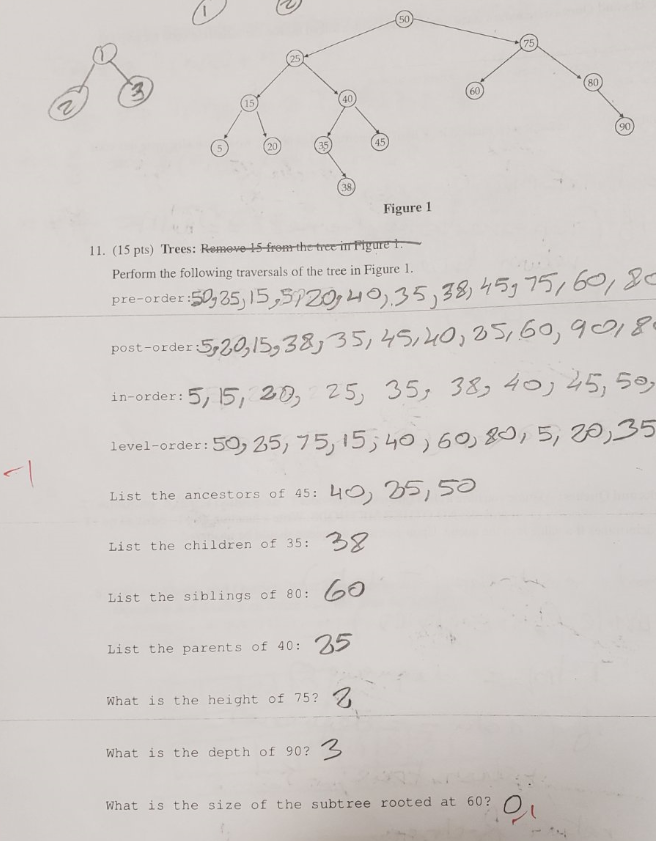 1 2
50
75
25
1
60 80
15 40
2 3
5 20 35 45 90
38
Figure 1
11. (15 pts) Trees: Remove 15 from the tree in Figure 1.
Perform the following traversals of the tree in Figure 1.
pre-order: 50, 25, 15, 5, 20, 40, 35, 38, 45, 75, 60, 80
post-order: 5, 20, 15, 38, 35, 45, 40, 25, 60, 90, 8
in-order: 5, 15, 20, 25, 35, 38, 40, 45, 50,
level-order: 50, 25, 75, 15, 40, 60, 80, 5, 20, 35
-1
List the ancestors of 45: 40, 25, 50
List the children of 35: 38
List the siblings of 80: 60
List the parents of 40: 25
What is the height of 75? 2
What is the depth of 90? 3
What is the size of the subtree rooted at 60? 0 1